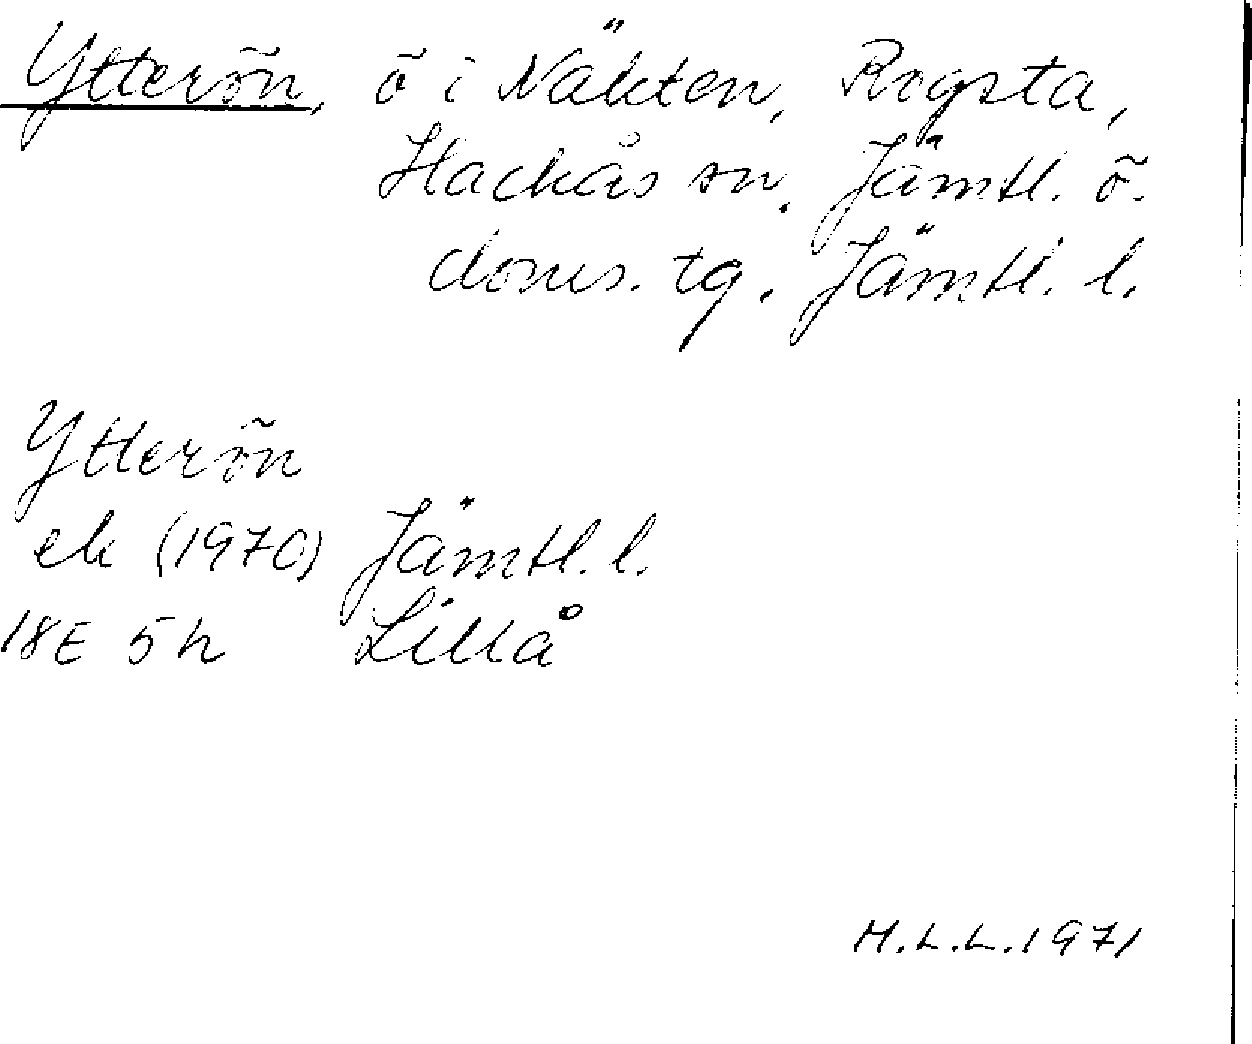 Ytterön, ö i Näkten, Rogsta,
Hackås sn. Jämtl. ö.
doms. tg. Jämtl. l.
Ytterön
ek (1970) Jämtl. l.
18E 5h Lillå
H.L.L. 1971